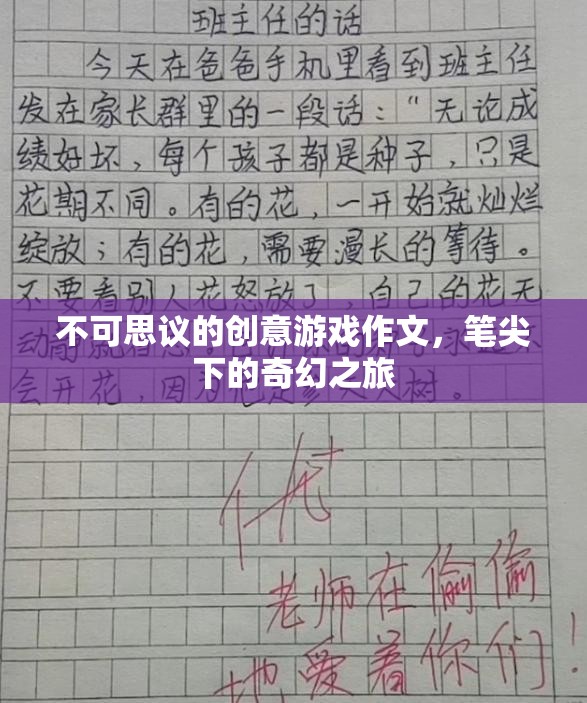 班主任的话
今天在爸爸手机里看到班主任
发在家长群里的一段话：“无论成
绩好坏，每个孩子都是种子，只是
花期不同。有的花，一开始就灿烂
绽放；有的花，需要漫长的等待。
不要看别人花怒放了，自己的花无
不可思议的创意游戏作文，笔尖
下的奇幻之旅
会开花，因为他是参天大树。
优+
老师在偷偷
地爱着你们！